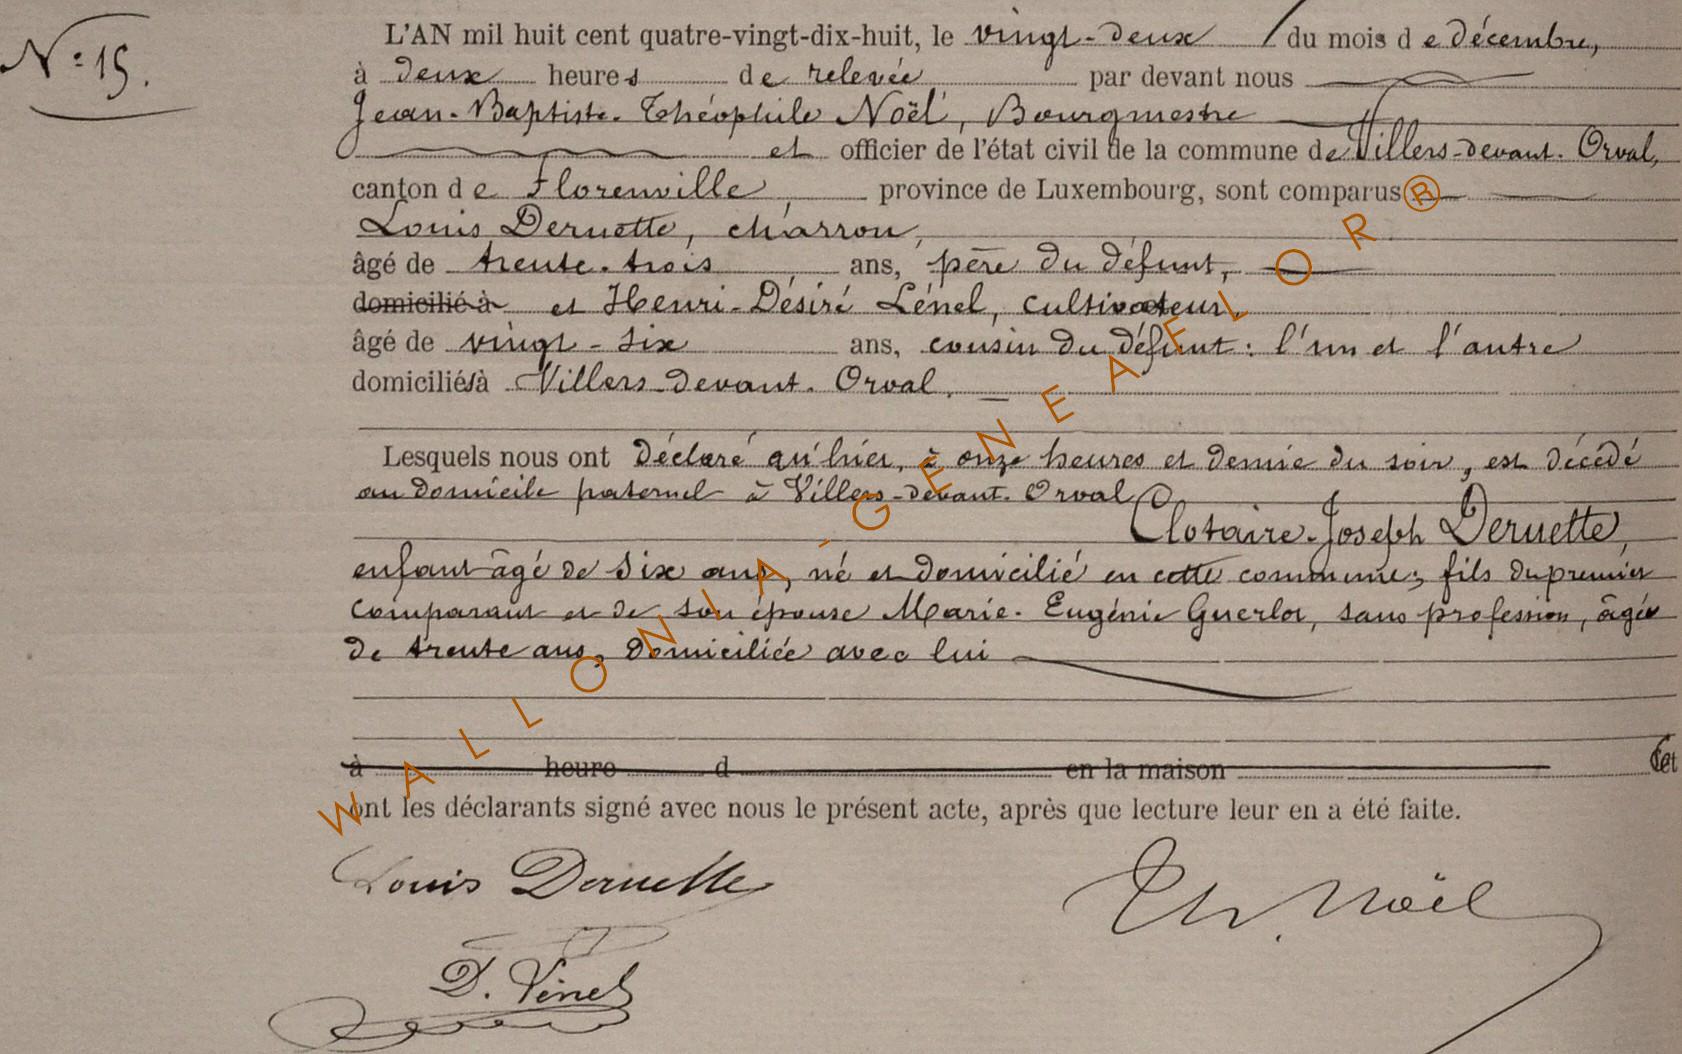 N° 15.
L'AN mil huit cent quatre-vingt-dix-huit, le vingt-deux du mois de décembre,
à deux heures de relevée par devant nous
Jean-Baptiste-Théophile Noël, Bourgmestre
et officier de l'état civil de la commune de Villers-devant-Orval,
canton de Florenville, province de Luxembourg, sont comparus
Louis Deruette, charron,
âgé de trente-trois ans, père du défunt,
domicilié à et Henri-Désiré Lénel, cultivateur,
âgé de vingt-six ans, cousin du défunt: l'un et l'autre
domiciliés à Villers-devant-Orval.
Lesquels nous ont déclaré qu'hier, à onze heures et demie du soir, est décédé
au domicile paternel à Villers-devant-Orval
Clotaire-Joseph Deruette,
enfant âgé de six ans, né et domicilié en cette commune; fils du premier
comparant et de son épouse Marie-Eugénie Guerlot, sans profession, âgée
de trente ans, domiciliée avec lui
à heure d en la maison Et
ont les déclarants signé avec nous le présent acte, après que lecture leur en a été faite.
Louis Deruette
Th. Noël
D. Lénel
WALLONIA-GENEAFLOR®